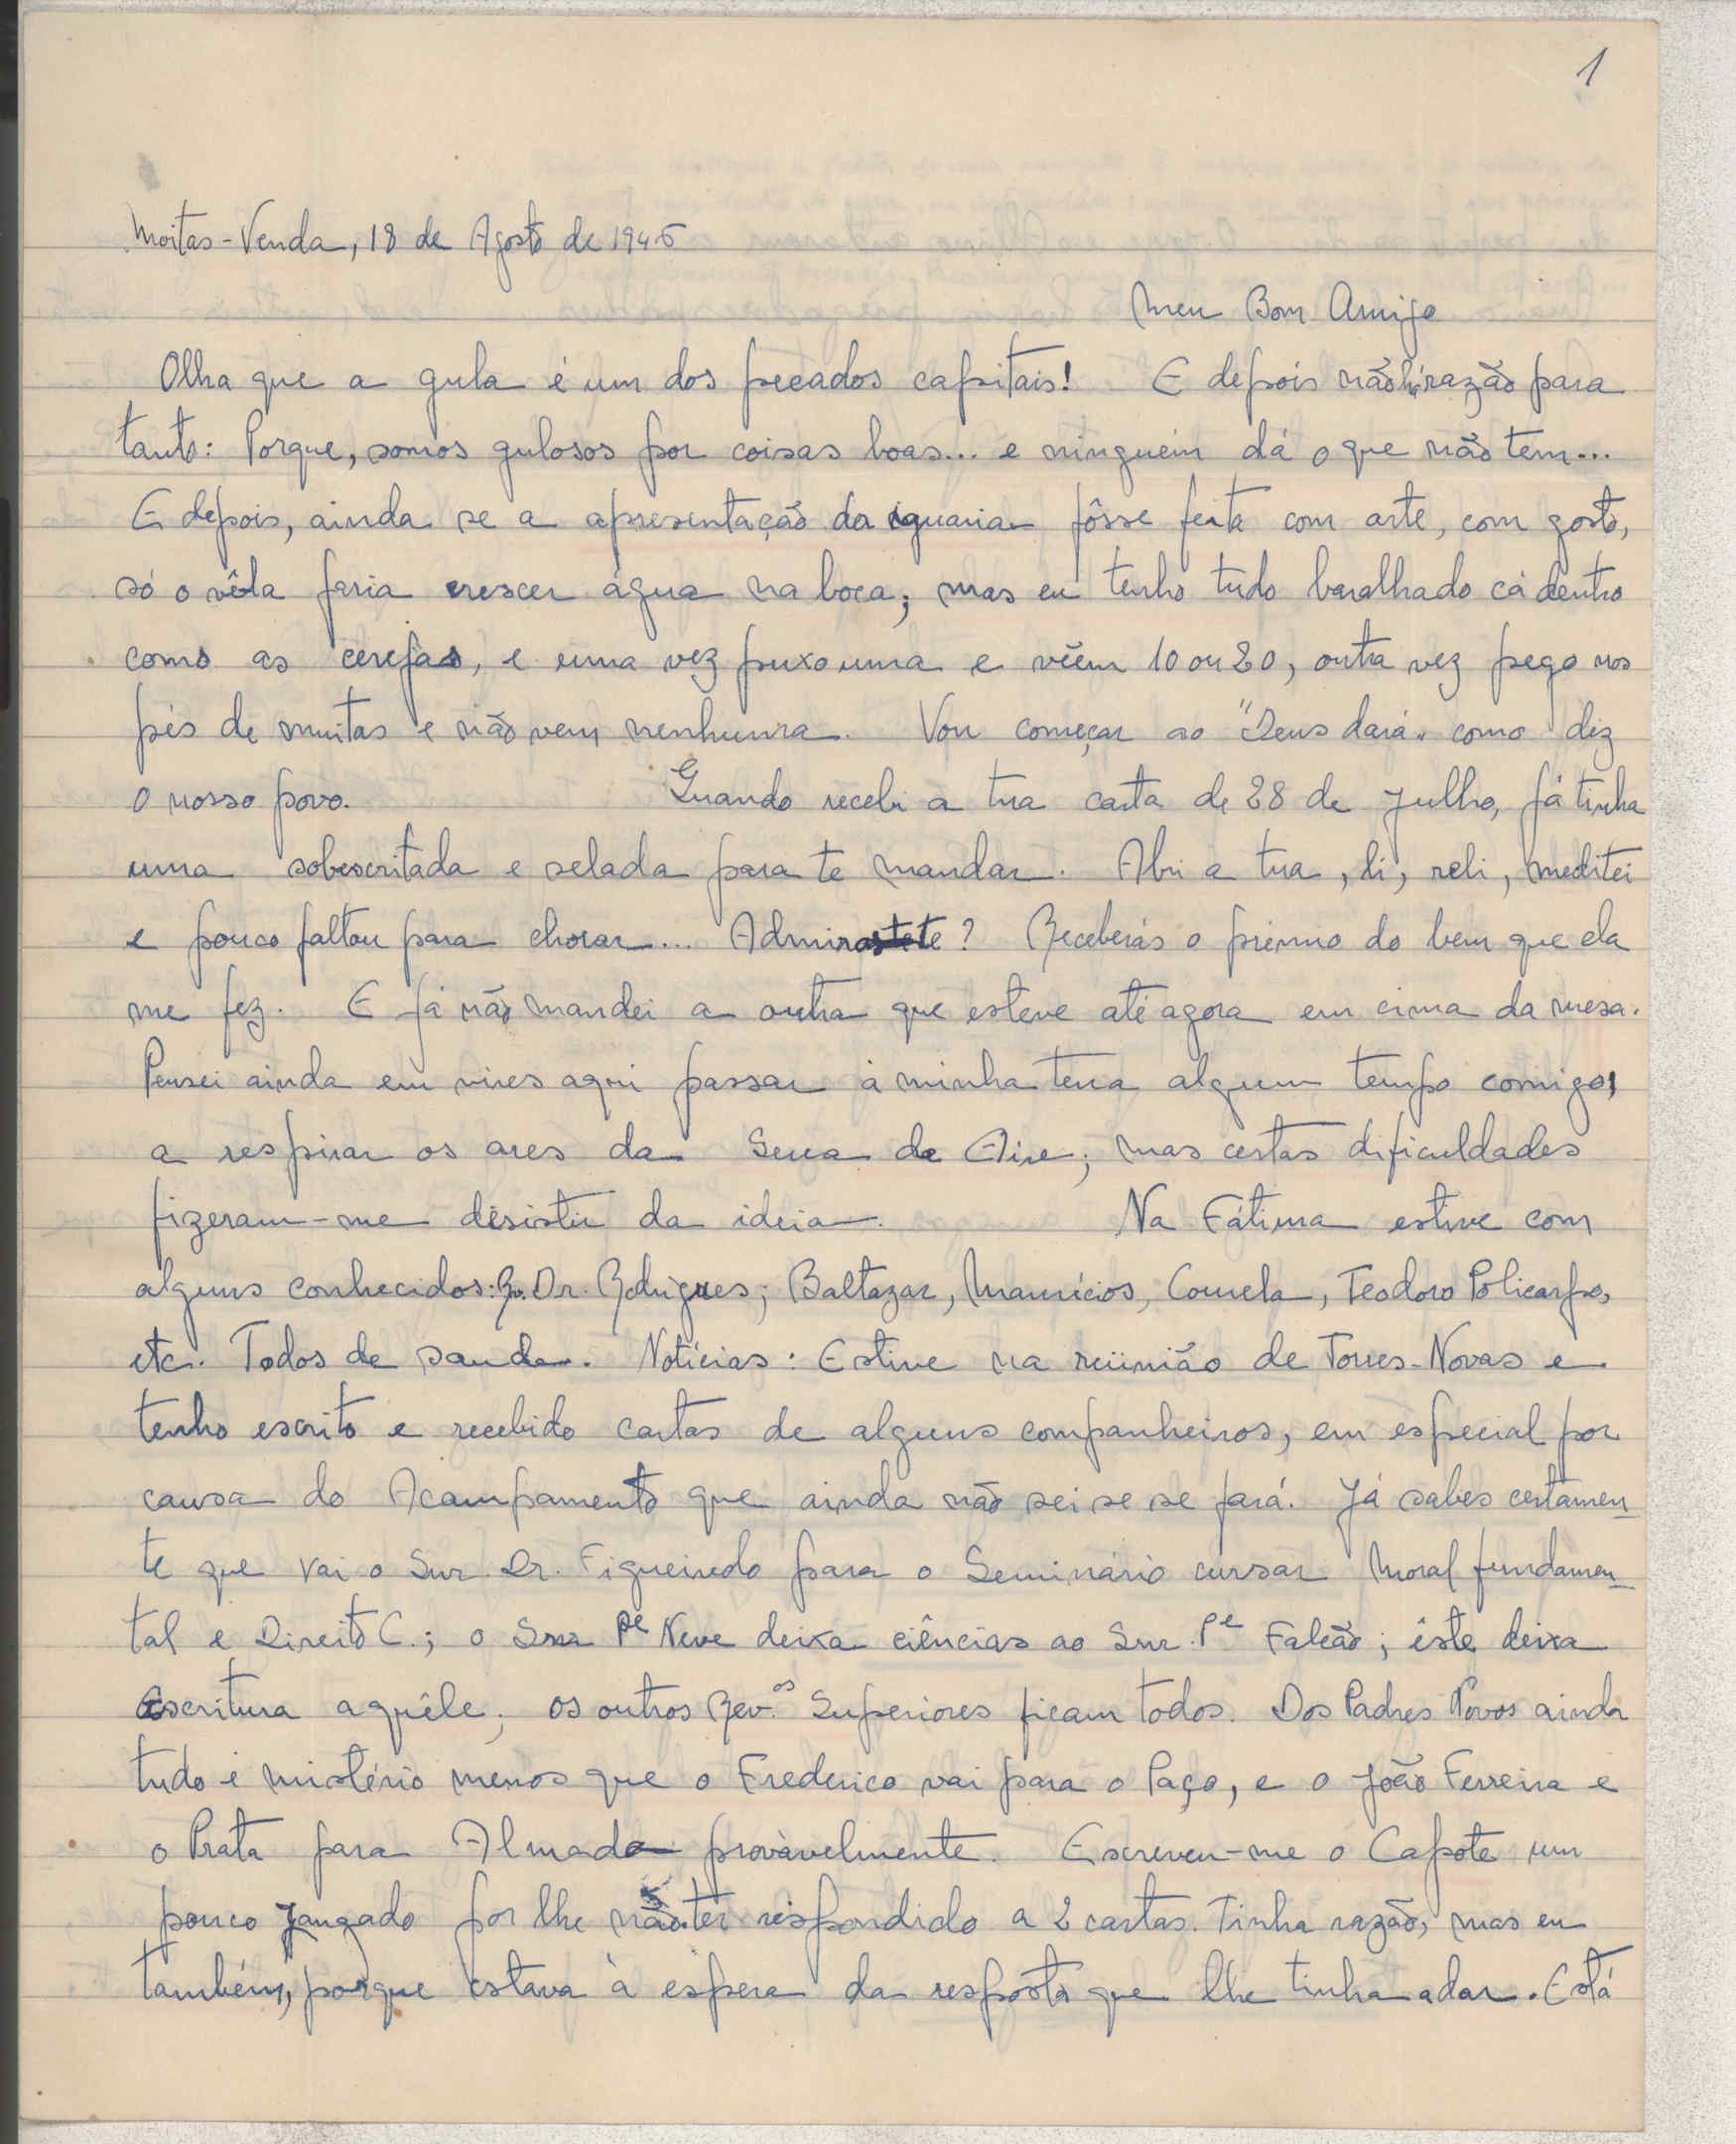 1
Moitas-Venda, 18 de Agosto de 1945
Meu Bom Amigo
Olha que a gula é um dos pecados capitais! E depois não há razão para
tanto: Porque, somos gulosos por coisas boas... e ninguém dá o que não tem...
E depois, ainda se a apresentação da iguaria fôsse feita com arte, com gosto,
só o vê-la faria crescer água na boca; mas eu tenho tudo baralhado cá dentro
como as cerejas, e uma vez puxo uma e vêem 10 ou 20, outra vez pego nos
pés de muitas e não vem nenhuma. Vou começar ao "Deus dará" como diz
o nosso povo. Quando recebi a tua carta de 28 de Julho, já tinha
uma sobescritada e selada para te mandar. Abri a tua, li, reli, meditei
e pouco faltou para chorar... Admiraste? Receberás o prémio do bem que ela
me fez. E já não mandei a outra que esteve até agora em cima da mesa.
Pensei ainda em vires aqui passar à minha terra algum tempo comigo,
a respirar os ares da Serra de Aire; mas certas dificuldades
fizeram-me desistir da ideia. Na Fátima estive com
alguns conhecidos: Dr. Rodrigues; Baltazar, Maurícios, Courela, Teodoro Policarpo,
etc. Todos de saude. Notícias: Estive na reünião de Torres-Novas e
tenho escrito e recebido cartas de alguns companheiros, em especial por
causa do Acampamento que ainda não sei se se fará. Já sabes certamen-
te que vai o Snr. Dr. Figueiredo para o Seminário cursar Moral fundamen-
tal e Direito C.; o Snr Pe Neve deixa ciências ao Snr. Pe Falcão; êste deixa
Escritura aquêle; os outros Rev.os Superiores ficam todos. Dos Padres Novos ainda
tudo é mistério menos que o Frederico vai para o Paço, e o João Ferreira e
o Prata para Almada provàvelmente. Escreveu-me o Capote um
pouco zangado por lhe não ter respondido a 2 cartas. Tinha razão, mas eu
também, porque estava à espera da resposta que lhe tinha a dar. Está